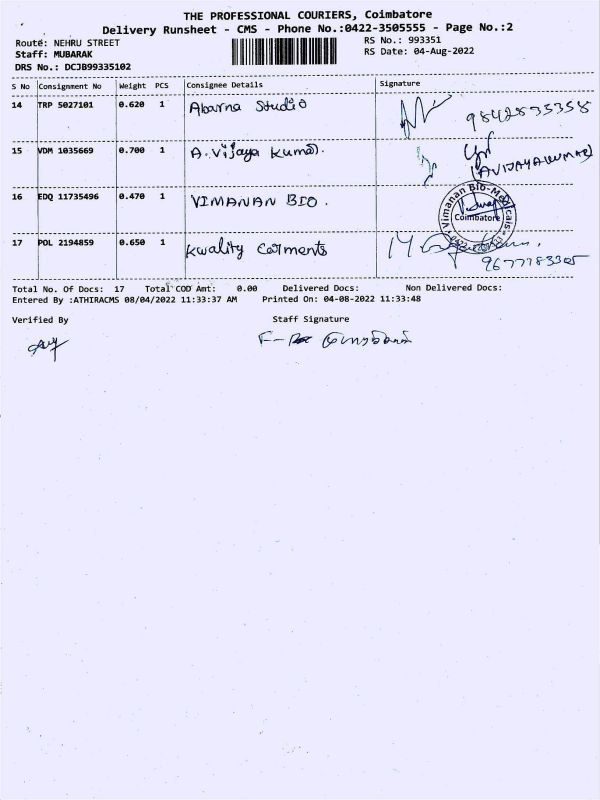 THE PROFESSIONAL COURIERS, Coimbatore
Delivery Runsheet - CMS - Phone No.:0422-3505555 - Page No.:2
Route: NEHRU STREET RS No.: 993351
Staff: MUBARAK RS Date: 04-Aug-2022
DRS No.: DCJB99335102
S No Consignment No Weight PCS Consignee Details Signature
14 TRP 5027101 0.620 1 Abarna Studio
15 VDM 1035669 0.700 1 A.Vijaya Kumar.
(AVIJAYAKUMAR)
16 EDQ 11735496 0.470 1 VIMANAN BIO.
Vimanan Bio-Medicals
Coimbatore
17 POL 2194859 0.650 1 Kwality Garments
9677783305
Total No. Of Docs: 17 Total COD Amt: 0.00 Delivered Docs: Non Delivered Docs:
Entered By :ATHIRACMS 08/04/2022 11:33:37 AM Printed On: 04-08-2022 11:33:48
Verified By Staff Signature